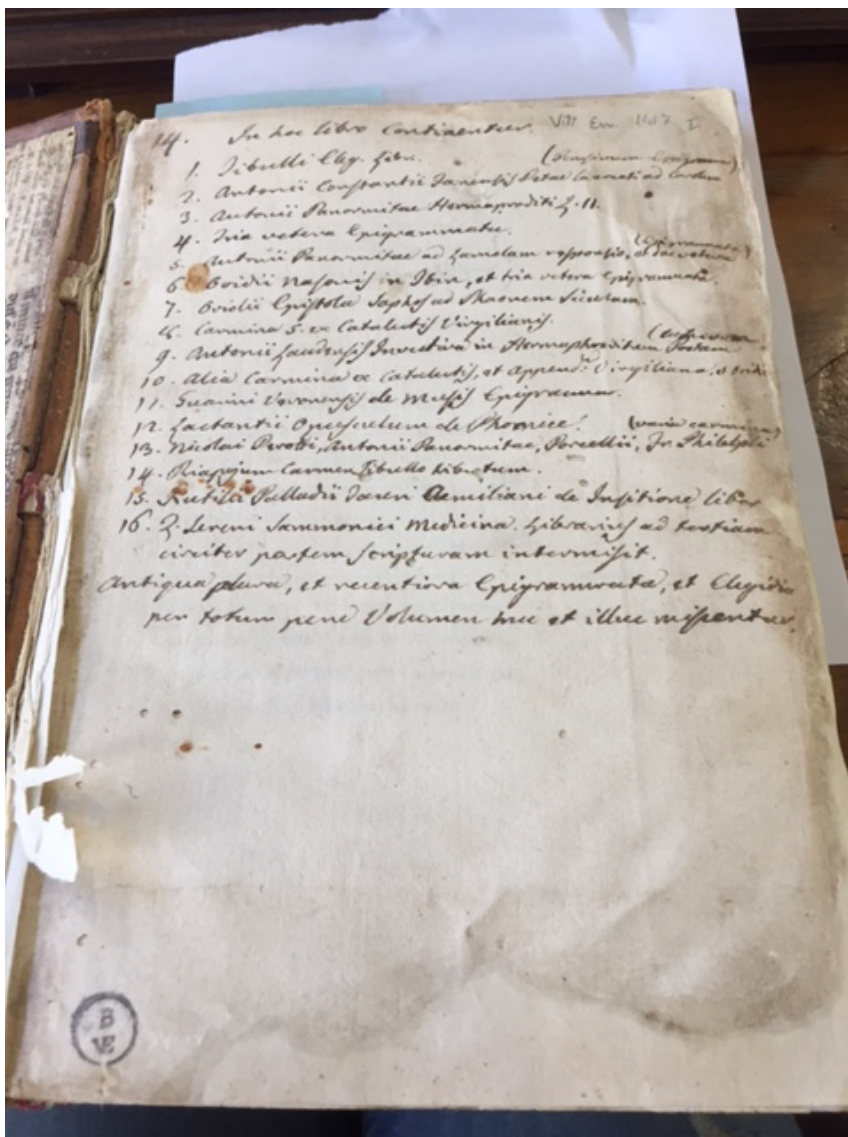 14. In hoc libro continentur. Vitt. Em. 1417 I
1. Tibulli Eleg. Libri.
2. Antonii Constantii Fanensis Poetae laureati ad (Epigramma)
3. Antonii Panormitae Hermaproditi L. II.
4. Tria vetera Epigrammata.
5. Antonii Panormitae ad Lamolam responsio, et duo vetera (Epigrammata)
6. Ovidii Nasonis in Ibin, et tria vetera Epigrammata.
7. Ovidii Epistola Saphos ad Phaonem Siculum.
8. Carmina 5. ex Catalectis Virgilianis.
9. Antonii Laudensis Invectiva in Hermaphroditum Poetam
10. Alia Carmina ex Catalectis, et Append. Virgiliana, et
11. Guarini Veronensis de Musis Epigramma.
12. Lactantii Opusculum de Phoenice.
13. Nicolai Perotti, Antonii Panormitae, Porcellii, Fr. Philelphi (varia carmina)
14. Priapejum Carmen Tibullo tributum.
15. Rutilii Palladii Tauri Aemiliani de Insitione liber
16. Q. Sereni Sammonici Medicina. Librarius ad tertiam
circiter partem scripturam intermisit.
Antiqua plura, et recentiora Epigrammata, et Elegidia
per totum pene Volumen huc et illuc
B
VE